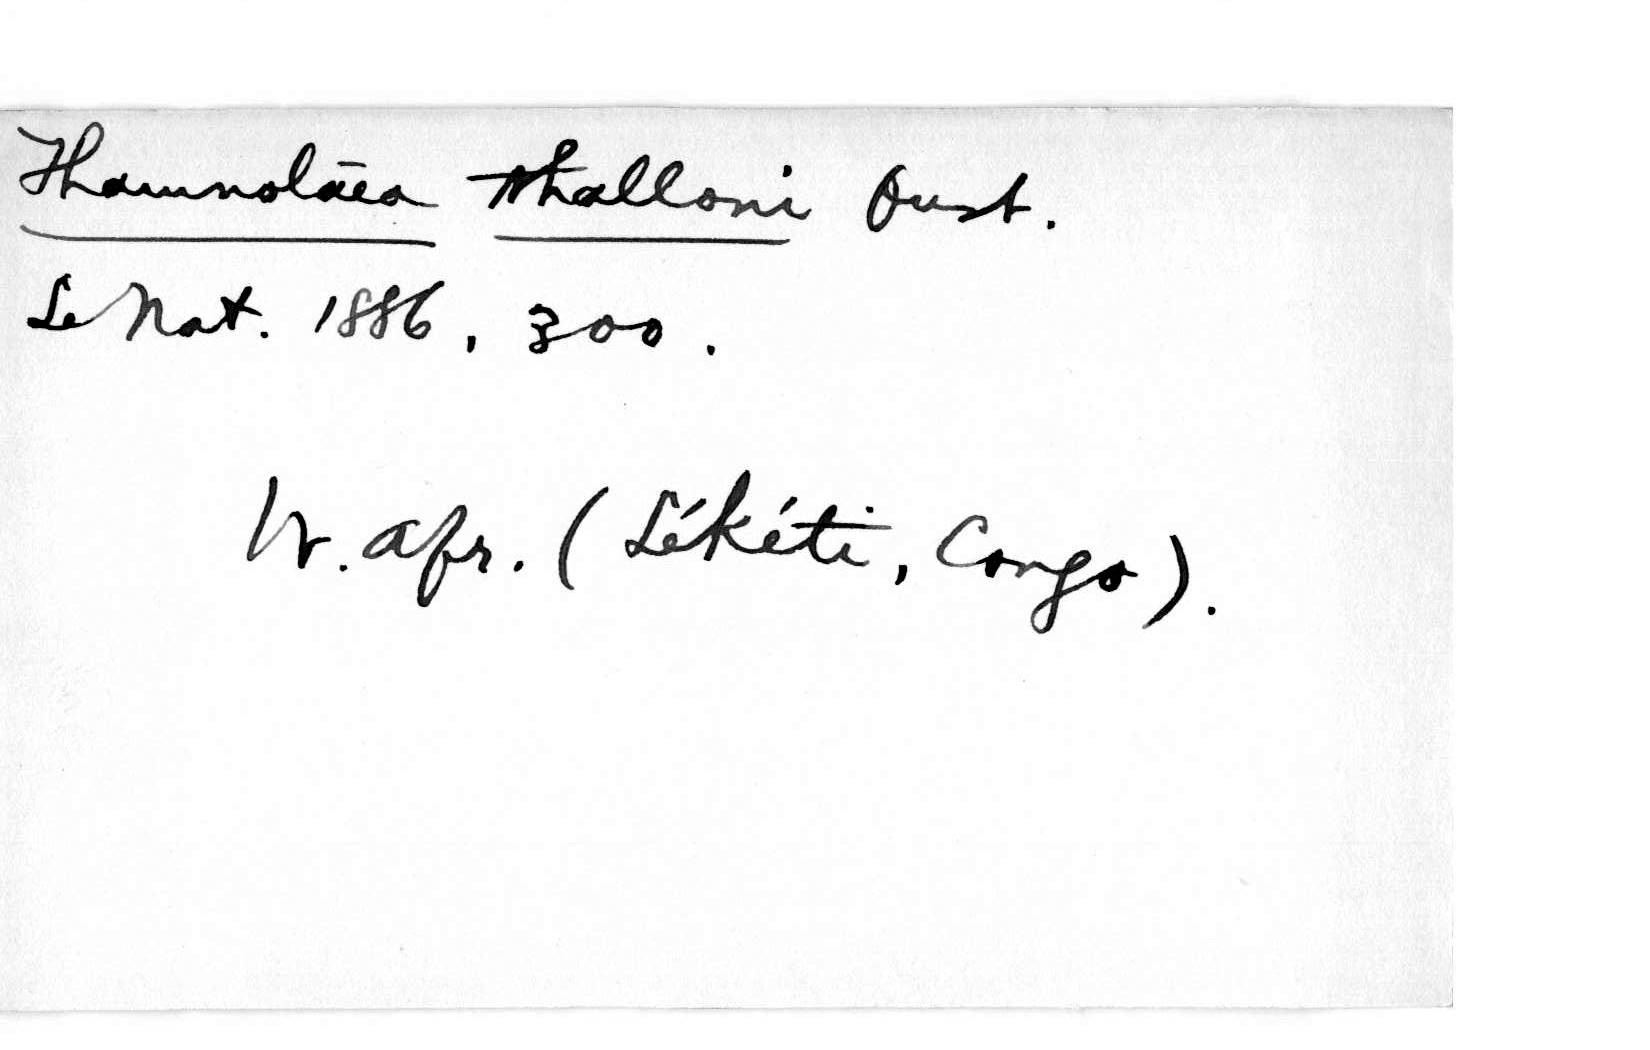 Thamnolāea thalloni Oust.
Le Nat. 1886, 300.
W. Afr. (Lékéti, Congo).